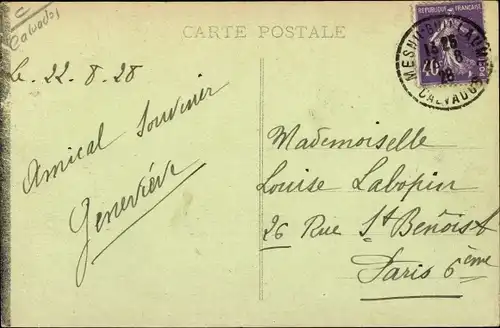 C
Calvados
CARTE POSTALE
REPUBLIQUE FRANÇAISE
40c
MESNIL-GUILLAUME
13 25
CALVADOS
28
Le 22.8.28
Amical Souvenir
Geneviève
Mademoiselle
Louise Labopin
26 Rue St Benoist
Paris 6ème